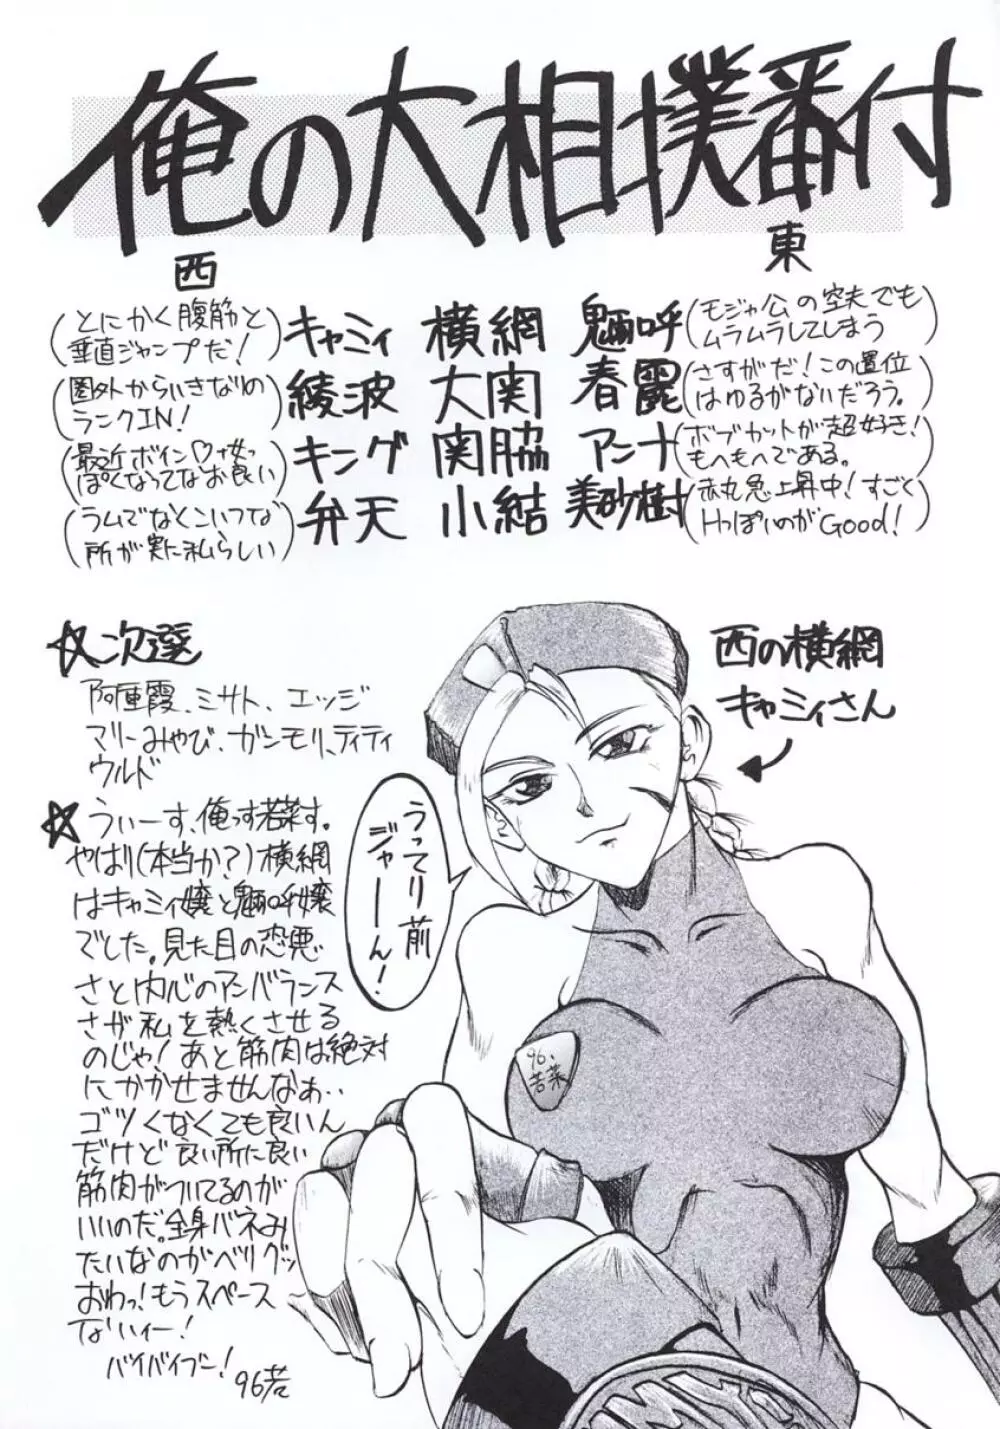 俺の大相撲番付
西
東
(とにかく腹筋と
垂直ジャンプだ!)
キャミィ 横網 魎呼
(モジャ公の空夫でも
ムラムラしてしまう)
(圏外からいきなりの
ランクIN!)
綾波 大関 春麗
(さすがだ!この置位
はゆるがないだろう。)
(最近ボイン♡女っ
ぽくなってなお良い)
キング 関脇 アンナ
(ボブカットが超好き!
もへもへである。)
(ラムでなくこいつな
所が実に私らしい)
弁天 小結 美砂樹
(赤丸急上昇中!すごく
Hっぽいのが Good!)
☆次選
阿重霞、ミサト、エッジ
マリーみやび、ガンモリ、ティティ
ウルド
☆うぃーす、俺っす若菜す。
やはり(本当か?)横網
はキャミィ嬢と魎呼嬢
でした。見た目の恐悪
さと内心のアンバランス
さが私を熱くさせる
のじゃ!あと筋肉は絶対
にかかせませんなぁ‥
ゴツくなくても良いん
だけど良い所に良い
筋肉がついてるのが
いいのだ。全身バネみ
たいなのがベリグッ
おわっ!もうスペース
ないィー!
バイバイブー!
96若
西の横網
キャミィさん
うってり前
ジャーーん!
96、
若菜